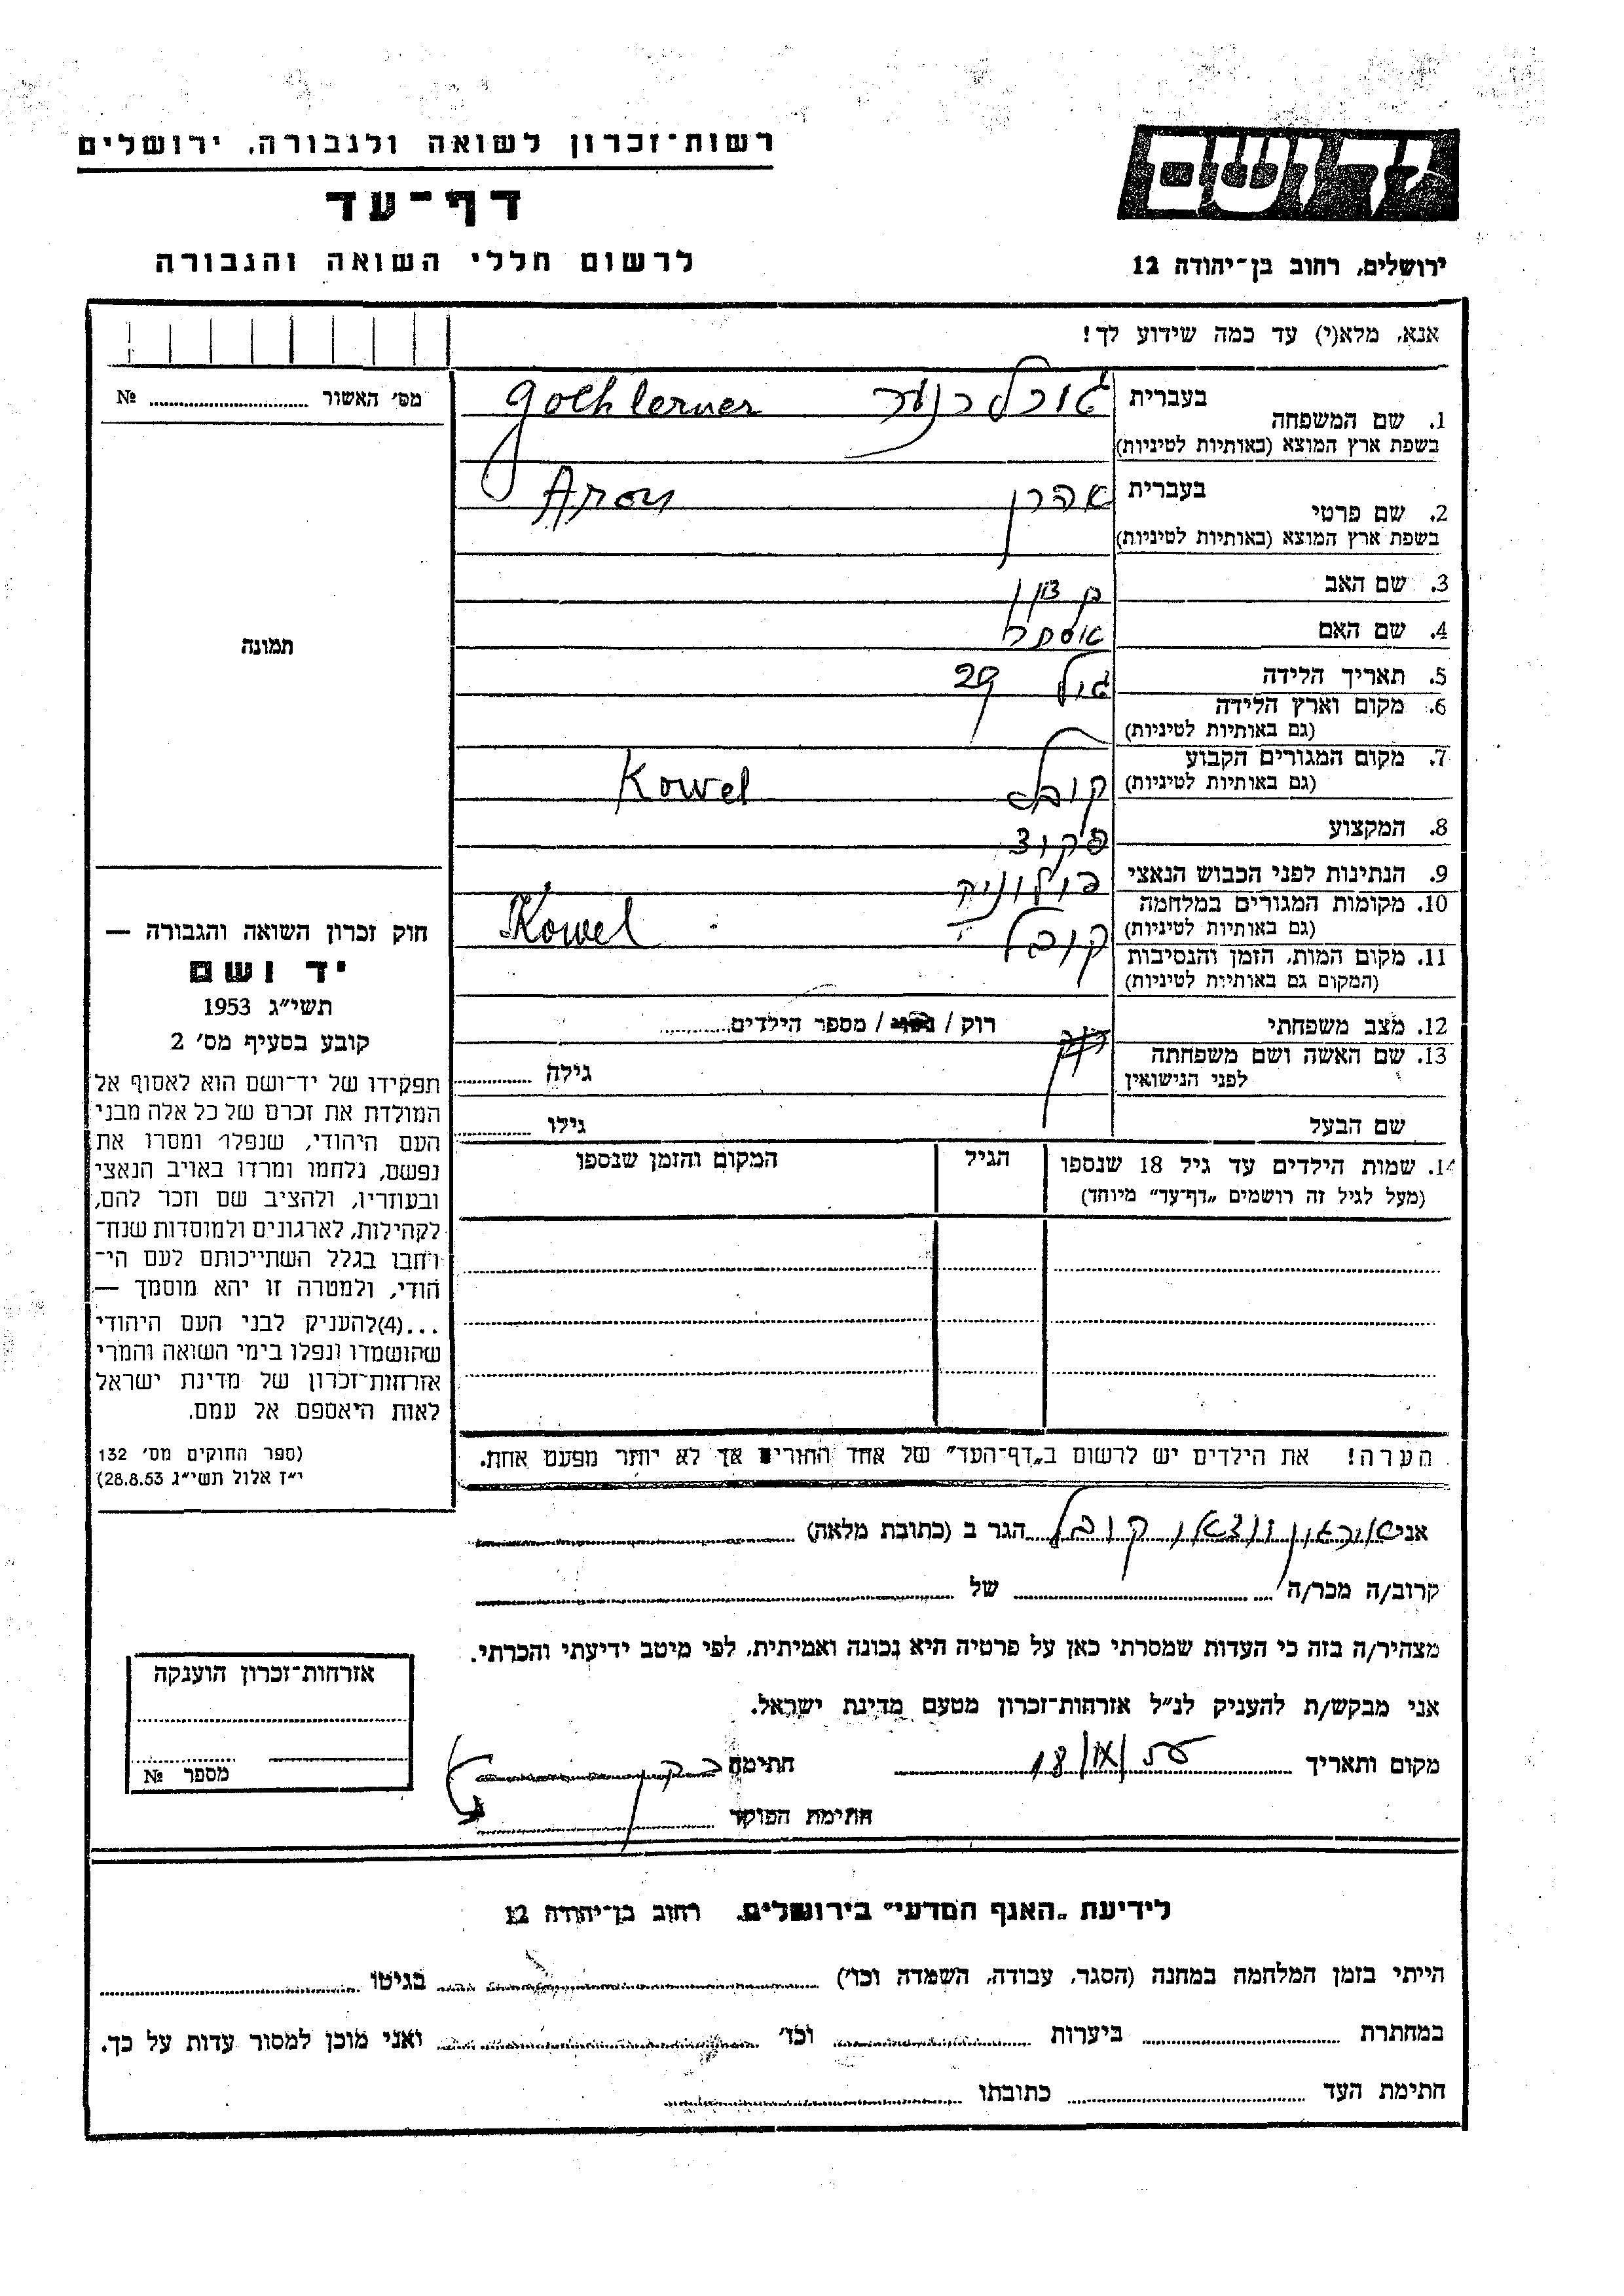 רשות־זכרון לשואה ולגבורה, ירושלים
דף־עד
לרשום חללי השואה והגבורה
יד ושם
ירושלים, רחוב בן־יהודה 12
אנא, מלא(י) עד כמה שידוע לך!
מס׳ האשור № 
תמונה
1. שם המשפחה בעברית
בשפת ארץ המוצא (באותיות לטיניות)
גוכלרנער Gochlerner
2. שם פרטי בעברית
בשפת ארץ המוצא (באותיות לטיניות)
אהרן Aron
3. שם האב בן ציון
4. שם האם אסתר
5. תאריך הלידה גיל 29
6. מקום וארץ הלידה
(גם באותיות לטיניות)
7. מקום המגורים הקבוע
(גם באותיות לטיניות)
קובל Kowel
8. המקצוע פקיד
9. הנתינות לפני הכבוש הנאצי פולונית
10. מקומות המגורים במלחמה
(גם באותיות לטיניות)
קובל Kowel
11. מקום המות, הזמן והנסיבות
(המקום גם באותיות לטיניות)
12. מצב משפחתי רוק / נשוי / מספר הילדים
13. שם האשה ושם משפחתה
לפני הנישואין
גילה
שם הבעל גילו
14. שמות הילדים עד גיל 18 שנספו
(מעל לגיל זה רושמים „דף־עד״ מיוחד)
הגיל
המקום והזמן שנספו
הערה! את הילדים יש לרשום ב„דף־העד״ של אחד ההורים אך לא יותר מפעם אחת.
חוק זכרון השואה והגבורה —
יד ושם
תשי״ג 1953
קובע בסעיף מס׳ 2
תפקידו של יד־ושם הוא לאסוף אל
המולדת את זכרם של כל אלה מבני
העם היהודי, שנפלו ומסרו את
נפשם, נלחמו ומרדו באויב הנאצי
ובעוזריו, ולהציב שם וזכר להם,
לקהילות, לארגונים ולמוסדות שנח־
רחבו בגלל השתייכותם לעם הי־
הודי, ולמטרה זו יהא מוסמך —
...(4)להעניק לבני העם היהודי
שהושמדו ונפלו בימי השואה והמרי
אזרחות־זכרון של מדינת ישראל
לאות היאספם אל עמם.
(ספר החוקים מס׳ 132
י״ז אלול תשי״ג 28.8.53)
אני ארגון יוצאי קובל הגר ב (כתובת מלאה)
קרוב/ה מכר/ה של
מצהיר/ה בזה כי העדות שמסרתי כאן על פרטיה היא נכונה ואמיתית, לפי מיטב ידיעתי והכרתי.
אני מבקש/ת להעניק לנ״ל אזרחות־זכרון מטעם מדינת ישראל.
מקום ותאריך חתימה
חתימת הפוקד
אזרחות־זכרון הוענקה
מספר №
לידיעת „האגף המדעי״ בירושלים, רחוב בן־יהודה 12
הייתי בזמן המלחמה במחנה (הסגר, עבודה, השמדה וכו׳) בגיטו
במחתרת ביערות וכו׳ ואני מוכן למסור עדות על כך.
חתימת העד כתובתו